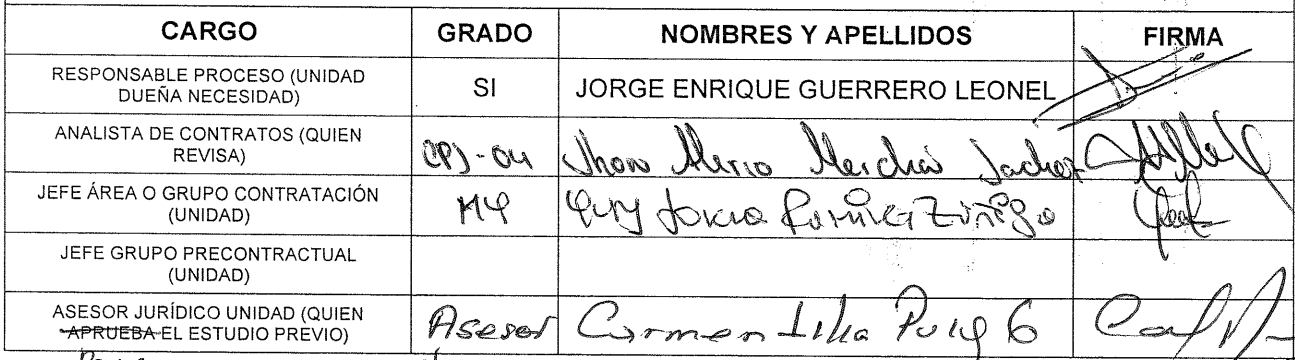 CARGO GRADO NOMBRES Y APELLIDOS FIRMA
RESPONSABLE PROCESO (UNIDAD
DUEÑA NECESIDAD) SI JORGE ENRIQUE GUERRERO LEONEL
ANALISTA DE CONTRATOS (QUIEN
REVISA) Jhon
JEFE ÁREA O GRUPO CONTRATACIÓN
(UNIDAD) Zuñiga
JEFE GRUPO PRECONTRACTUAL
(UNIDAD)
ASESOR JURÍDICO UNIDAD (QUIEN
APRUEBA EL ESTUDIO PREVIO) Asesor Carmen Puig G